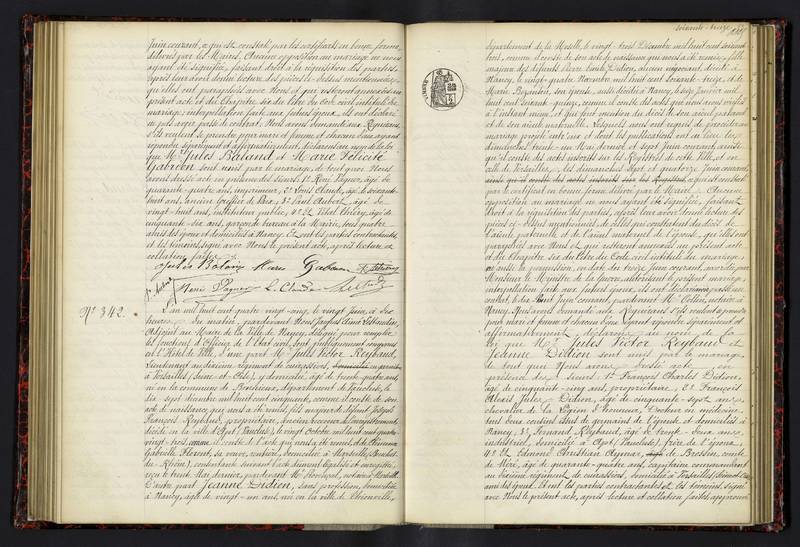 Juin courant, ce qui est constaté par les certificats en bonne forme,
délivrés par les Maires. Aucune opposition au mariage ne nous
ayant été signifiée, faisant droit à la réquisition des parties,
après leur avoir donné lecture des pièces ci-dessus mentionnées,
qu'elles ont paraphées avec Nous et qui resteront annexées au
présent acte et du Chapitre six du titre du Code civil intitulé du
mariage, interpellation faite aux futurs époux, ils ont déclaré
ne pas avoir passé de contrat. Nous avons demandé aux Requérans
s'ils veulent se prendre pour mari et femme et chacun d'eux ayant
répondu séparément et affirmativement, déclarons au nom de la loi
que Mr. Jules Balland et Marie Félicité
Gabrion sont unis par le mariage, de tout quoi Nous
avons dressé acte en présence des sieurs 1° René Pagner, âgé de
quarante-quatre ans, imprimeur, 2° Louis Claude, âgé de soixante-
huit ans, ancien Greffier de Paix, 3° Paul Aubert, âgé de
vingt-huit ans, instituteur public, 4° Et Vital Thiéry, âgé de
cinquante-six ans, garçon de bureau à la Mairie, tous quatre
amis des époux et domiciliés à Nancy. Et ont les parties contractantes
et les témoins, signé avec Nous le présent acte, après lecture et
collation faites.
René Pagner L. Claude
N° 342.
L'an mil huit cent quatre vingt-cinq, le vingt Juin, à dix
heures du matin, pardevant Nous
Adjoint au Maire de la Ville de Nancy, délégué pour remplir
les fonctions d'Officier de l'Etat civil, sont publiquement comparus
en l'Hôtel de Ville, d'une part Mr. Jules Victor Reybaud,
Lieutenant au dixième régiment de cuirassiers, en garnison
à Versailles (Seine et Oise), y domicilié, âgé de trente-quatre ans,
né en la commune de département de Vaucluse, le
dix-sept décembre mil huit cent cinquante, comme il conste de son
acte de naissance qui nous a été remis, fils majeur de défunt Joseph
François Reybaud, propriétaire, ancien receveur de l'enregistrement,
décédé en la ville d'Apt (Vaucluse), le vingt Octobre mil huit cent quatre-
vingt-trois, comme il conste de l'acte qui nous a été remis, et de
Gabrielle Florent, sa veuve, rentière, domiciliée à Marseille, Bouches-
du-Rhône), consentante suivant l'acte dûment légalisé et enregistré,
reçu le trente Mai dernier, pardevant Me notaire à Marseille.
D'autre part Jeanne Didion, sans profession, domiciliée
à Nancy, âgée de vingt-un ans, née en la ville de Thionville,
soixante-treize
département de la Moselle, le vingt-trois Décembre mil huit cent soixante-
trois, comme il conste de son acte de naissance qui nous a été remis, fille
majeure des défunts Didion, décédé à
Nancy, le vingt-quatre Novembre mil huit cent soixante-treize, et de
Marie son épouse, aussi décédée à Nancy, le sept Janvier mil
huit cent soixante-quinze, comme il conste des actes que nous avons vérifiés
à l'instant même, et qui font mention du décès de son aïeul paternel
et de son aïeule maternelle. Lesquels nous ont requis de procéder au
mariage projeté entr'eux et dont les publications ont eu lieu les
dimanches trente-un Mai dernier et sept Juin courant, ainsi
qu'il conste des actes inscrits sur les Registres de cette Ville, et en
celle de Versailles, les dimanches sept et quatorze Juin courant,
par le certificat en bonne forme délivré par le Maire. Aucune
opposition au mariage ne nous ayant été signifiée, faisant
droit à la réquisition des parties, après leur avoir donné lecture des
pièces ci-dessus mentionnées, de celles qui constatent du décès de
l'aïeule paternelle et de l'aïeul maternel de l'épouse, qu'elles ont
paraphées avec Nous et qui resteront annexées au présent acte
et du Chapitre six du titre du Code civil intitulé du mariage,
vu aussi la permission, en date du treize Juin courant, accordée par
Monsieur le Ministre de la Guerre, autorisant le présent mariage,
interpellation faite aux futurs époux, ils ont déclaré avoir passé un
contrat, le dix huit Juin courant, pardevant Me Collin, notaire à
Nancy. Nous avons demandé aux Requérans s'ils veulent se prendre
pour mari et femme et chacun d'eux ayant répondu séparément et
affirmativement, déclarons au nom de la
loi que Mr. Jules Victor Reybaud et
Jeanne Didion sont unis par le mariage,
de tout quoi Nous avons dressé acte en
présence des sieurs 1° François Charles Didion,
âgé de cinquante-cinq ans, propriétaire, 2° François
Alexis Jules Didion, âgé de cinquante-sept ans,
chevalier de la Légion d'honneur, Docteur en médecine,
tous deux cousins issus de germains de l'épouse et domiciliés à
Nancy, 3° Fernand Reybaud, âgé de trente-deux ans,
industriel, domicilié à Apt (Vaucluse), frère de l'époux,
4° Et Edmond Christian Aymar, de Bressieu, comte
de Méré, âgé de quarante-quatre ans, capitaine commandant
au dixième régiment de cuirassiers, domicilié à Versailles (Seine et Oise)
ami des époux. Et ont les parties contractantes et les témoins, signé
avec Nous le présent acte, après lecture et collation faites, approuvant